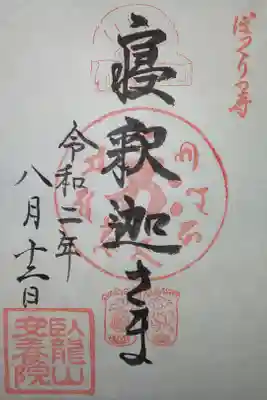 ぽっくり寺
寝釈迦さま
令和二年
八月十三日
臥龍山
安養院